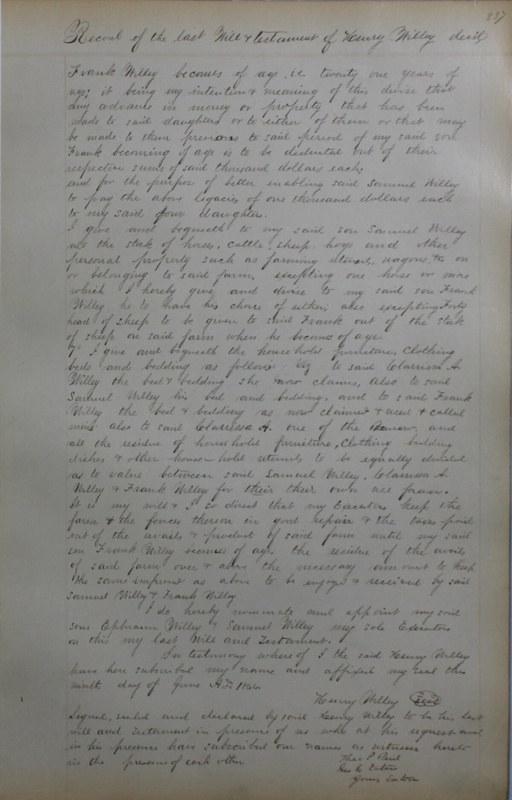 337
Record of the last Will & testament of Henry Willey decd
Frank Willey becomes of age i.e. twenty one years of
age; it being my intention & meaning of this devise that
any advances in money or property that has been
made to said daughters or to either of them or that may
be made to them previous to said period of my said son
Frank becoming of age is to be deducted out of their
respective sums of said thousand dollars each,
and for the purpose of better enabling said Samuel Willey
to pay the above legacies of one thousand dollars each
to my said four daughters.
I give and bequeath to my said son Samuel Willey
all the stock of horses, cattle, sheep, hogs and other
personal property such as farming utensils, wagons, &c on
or belonging to said farm, excepting one horse or mare
which I hereby give and devise to my said son Frank
Willey he to have his choice of either, also excepting Forty
head of sheep to be given to said Frank out of the stock
of sheep on said farm when he becomes of age.
7th I give and bequeath the household furniture, Clothing
beds and bedding as follows Viz to said Clarrissa A.
Willey the bed & bedding she now claims, also to said
Samuel Willey his bed and bedding, and to said Frank
Willey the bed & bedding as now claimed & used & called
mine also to said Clarrissa A. one of the Bureaus, and
all the residue of household furniture, Clothing bedding
dishes & other household utensils to be equally divided
as to value between said Samuel Willey, Clarrissa A.
Willey & Frank Willey for their their own use forever.
It is my will & I so direct that my Executors keep the
farm & the fences thereon in good repair & the taxes paid
out of the avails & product of said farm until my said
son Frank Willey becomes of age, the residue of the avails
of said farm over & above the necessary amount to keep
the same improved as above to be enjoyed & received by said
Samuel Willey & Frank Willey
I do hereby nominate and appoint my said
sons Ephraim Willey & Samuel Willey my sole Executors
on this my last Will and Testament.
In testimony where of I the said Henry Willey
have here subscribed my name and affixed my seal this
ninth day of June A.D. 1866
Henry Willey Seal
Signed, sealed and declared by said Henry Willey to be his last
will and testament in presence of us who at his request and
in his presence have subscribed our names as witness hereto
in the presence of each other
Eaton
Eaton